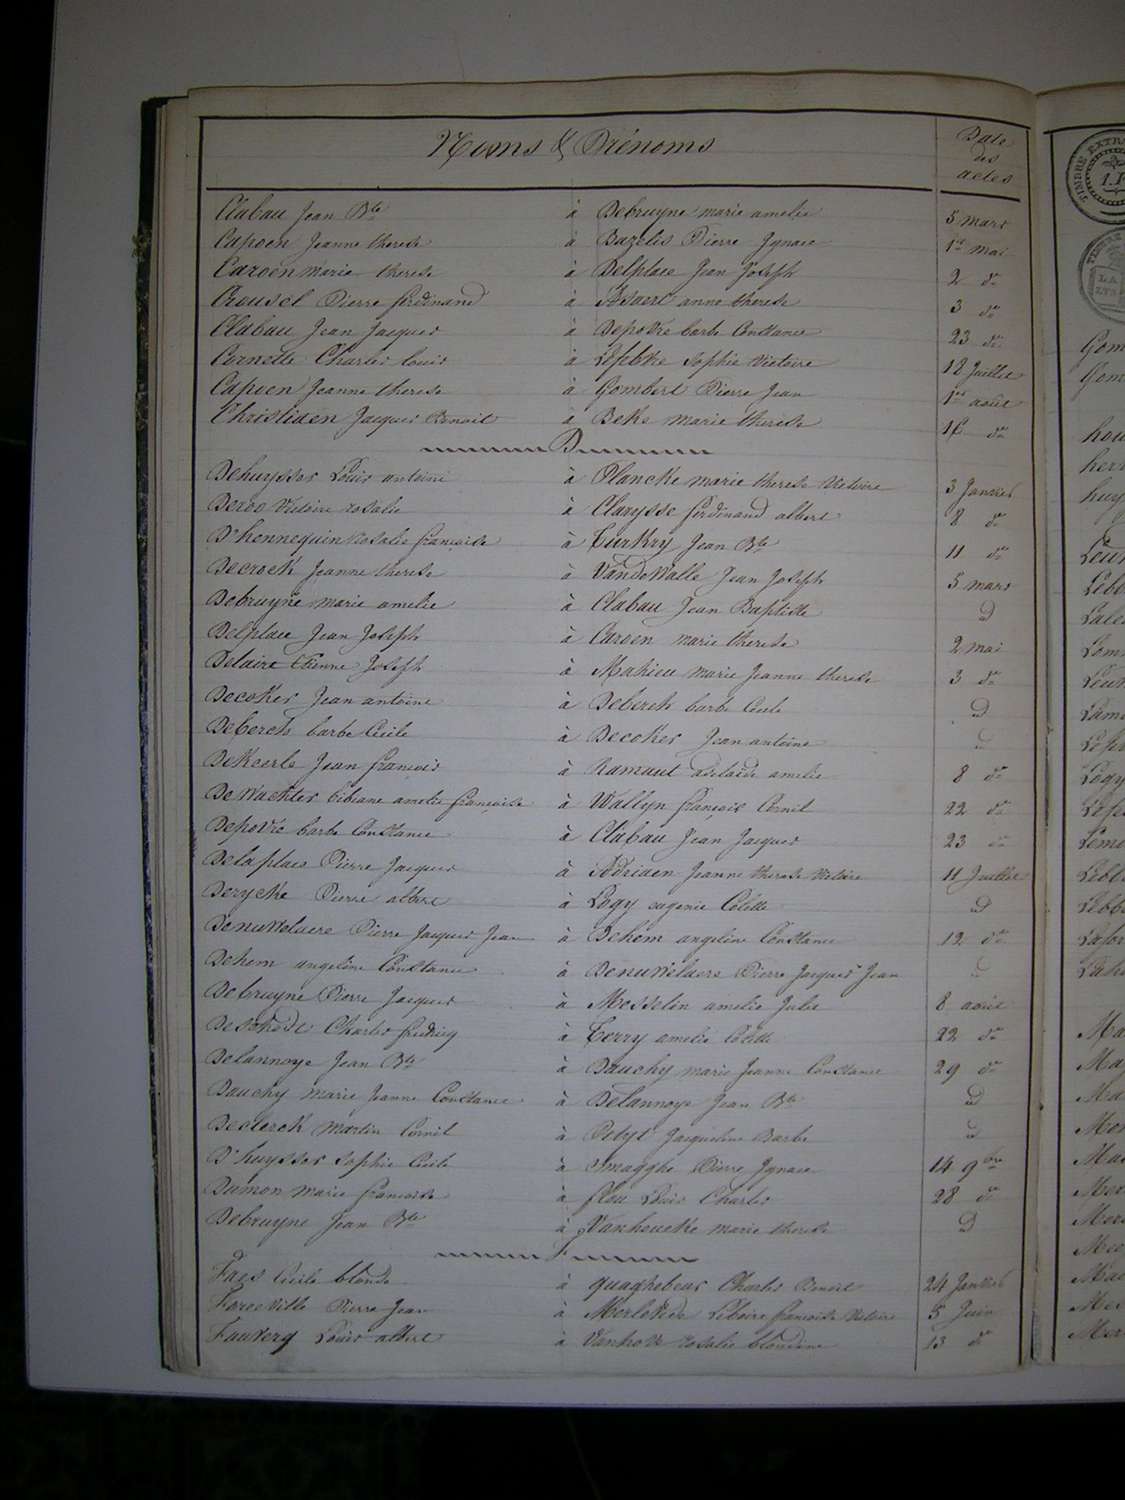 Noms & Prénoms
Date des actes
Clabau Jean Bte à Debruyne marie amelie 5 mars
Capoen Jeanne therese à Bazelis Pierre Ignace 1er mai
Caroen marie therese à Delplace Jean Joseph 2 do
Creusel Pierre ferdinand à Issaert anne therese 3 do
Clabau Jean Jacques à Depovre barbe Constance 23 do
Cornette Charles louis à Lefebvre Sophie Victoire 18 Juillet
Capoen Jeanne therese à Gombert Pierre Jean 1er août
Christiaen Jacques Benoit à Beke marie therese 16 do
D
Dehuysser Louis antoine à Plancke marie therese Victoire 3 Janvier
Deroo Victoire rosalie à Clarysse ferdinand albert 8 do
D'hennequin rosalie françoise à Turkry Jean Bte 11 do
Decrock Jeanne therese à VandeWalle Jean Joseph 5 mars
Debruyne marie amelie à Clabau Jean Baptiste d
Delplace Jean Joseph à Caroen marie therese 2 mai
Delaire Etienne Joseph à Mahieu marie Jeanne therese 3 do
Decoker Jean antoine à Deberch barbe Cecile d
Deberch barbe Cecile à Decoker Jean antoine d
DeKeerle Jean françois à Ramaut adelaïde amelie 8 do
DeWachter bibiane amelie françoise à Wallyn françois Cornil 22 do
Depovre barbe Constance à Clabau Jean Jacques 23 do
Delaplace Pierre Jacques à Adriaen Jeanne therese Victoire 11 Juillet
Derycke Pierre albert à Logy eugenie Colette d
Denuwelaere Pierre Jacques Jean à Dehem angeline Constance 12 do
Dehem angeline Constance à Denuwelaere Pierre Jacques Jean d
Debruyne Pierre Jacques à Messelin amelie Julie 8 août
Charles à Terry amelie Colette 22 do
Delannoye Jean Bte à Dauchy marie Jeanne Constance 29 do
Dauchy marie Jeanne Constance à Delannoye Jean Bte d
Declerck martin Cornil à Petyt Jacqueline Barbe d
D'huysser Sophie Cecile à Smagghe Pierre Ignace 14 9bre
Dumon marie françoise à flou Louis Charles 28 do
Debruyne Jean Bte à Vanhoucke marie therese d
F
Faes Cecile blonde à quaghebeur Charles Benoit 24 Janvier
Pierre Jean à françoise Victoire 5 Juin
Fauverg Louis albert à Vanhove rosalie blondine 13 do
TIMBRE EXTR
1.
Gom
Gom
hou
herr
huy